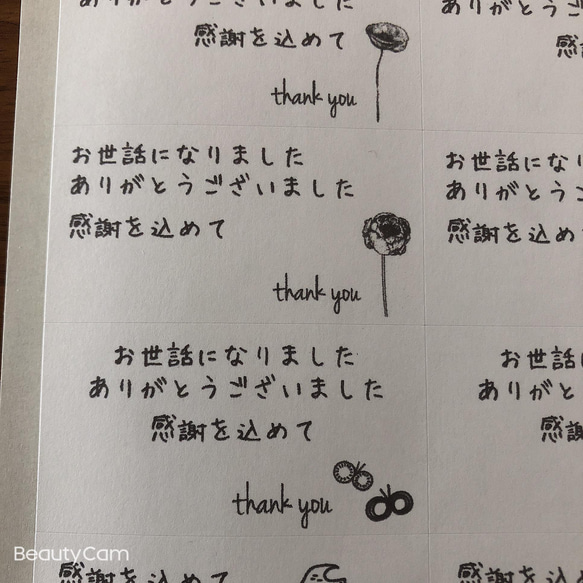 ありがとうございました
感謝を込めて
thank you
お世話になりました
ありがとうございました
感謝を込めて
thank you
お世話になりました
ありがとうございました
感謝を込めて
thank you
感謝を込めて
ありがとうご
感
お世話になり
ありがとうご
感謝を込め
お世話に
ありがと
感謝
感謝を込め
BeautyCam